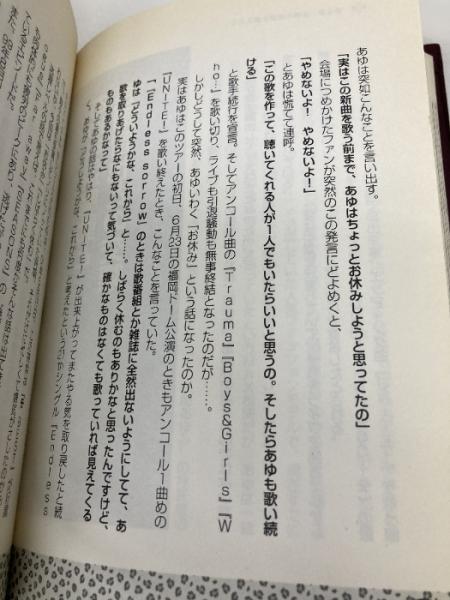 あゆは突如こんなことを言い出す。
「実はこの新曲を歌う前まで、あゆはちょっとお休みしようと思ってたの」
会場につめかけたファンが突然のこの発言にどよめくと、
「やめないよ! やめないよ!」
とあゆは慌てて連呼。
「この歌を作って、聴いてくれる人が1人でもいたらいいと思うの。そしたらあゆも歌い続
ける」
と歌手続行を宣言。そしてアンコール曲の『Trauma』『Boys&Girls』『W
ho…』を歌い切り、ライブも引退騒動も無事終結となったのだが……。
しかしどうして突然、あゆいわく「お休み」という話になったのか。
実はあゆはこのツアーの初日、6月23日の福岡ドーム公演のときもアンコール1曲めの
『UNITE!』を歌い終えたとき、こんなことを言っていた。
「『Endless sorrow』のときは歌番組とか雑誌に全然出ないようにしてて、あ
ゆは『どういようかな、これから』と……。しばらく休むのもありかなと思ったんですけど、
歌を取りあげたらなにもないって気づいて。確かなものはなくても歌っていれば見えてくる
ものもあるかなって」
『UNITE!』が出来上がってまたやる気を取り戻したと続